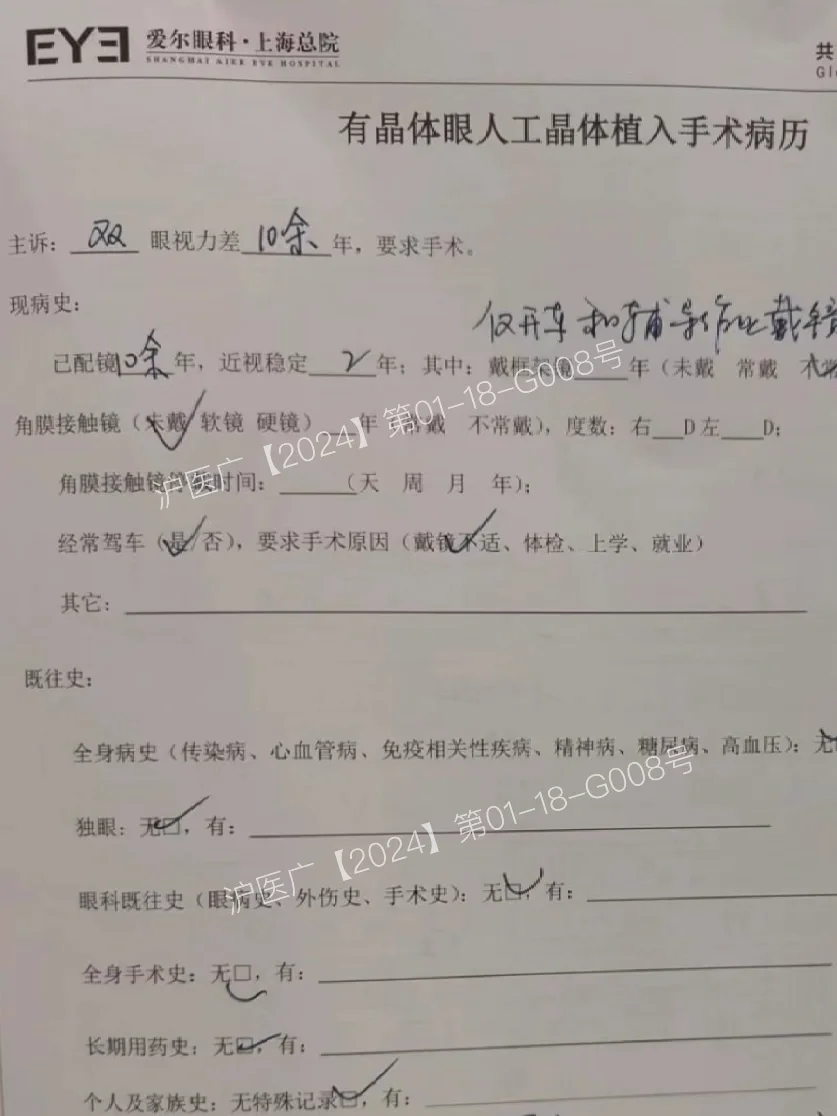 EYE 爱尔眼科·上海总院
SHANGHAI AIER EYE HOSPITAL
共
Glo
有晶体眼人工晶体植入手术病历
主诉：双 眼视力差 10余 年，要求手术。
现病史：
仅开车和辅导作业戴镜
已配镜10余年，近视稳定 2 年；其中：戴框架镜____年（未戴 常戴 不常
角膜接触镜（未戴 软镜 硬镜）__年（常戴 不常戴），度数：右__D左___D；
角膜接触镜停戴时间：_____（天 周 月 年）；
经常驾车（是/否），要求手术原因（戴镜不适、体检、上学、就业）
其它：
既往史：
全身病史（传染病、心血管病、免疫相关性疾病、精神病、糖尿病、高血压）：无
独眼：无□，有：
眼科既往史（眼病史、外伤史、手术史）：无□，有：
全身手术史：无□，有：
长期用药史：无□，有：
个人及家族史：无特殊记录□，有：
沪医广【2024】第01-18-G008号
沪医广【2024】第01-18-G008号